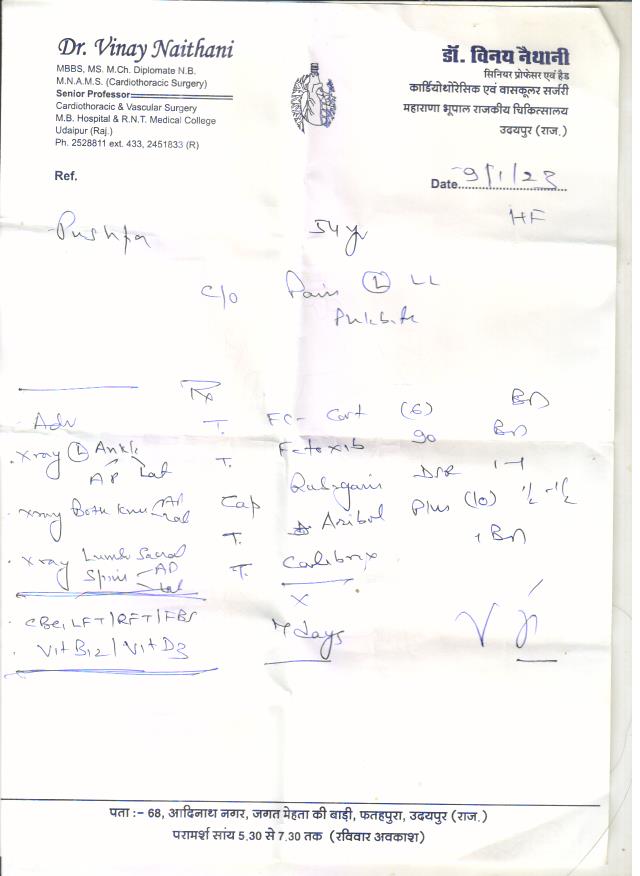 Dr. Vinay Naithani
MBBS, MS. M.Ch. Diplomate N.B.
M.N.A.M.S. (Cardiothoracic Surgery)
Senior Professor
Cardiothoracic & Vascular Surgery
M.B. Hospital & R.N.T. Medical College
Udaipur (Raj.)
Ph. 2528811 ext. 433, 2451833 (R)
Ref.
डॉ. विनय नैथानी
सिनियर प्रोफेसर एवं हैड
कार्डियोथोरेसिक एवं वासकूलर सर्जरी
महाराणा भूपाल राजकीय चिकित्सालय
उदयपुर (राज.)
Date 9/1/23
HF
Pushpa 54 yr
C/O Pain (L) LL
Rx
Adv
T. (6) BD
T. 90 BD
Xray (L) Ankle
AP Lat
Cap DSR 1-1
Xray Both Knee AP Lat
T. Plus (10) 1/2 - 1/2
Xray Lumbo Sacral
Spine AP
Lat
T. BD
X
7 days
CBC, LFT/RFT/FBS
Vit B12/Vit D3
पता :- 68, आदिनाथ नगर, जगत मेहता की बाड़ी, फतहपुरा, उदयपुर (राज.)
परामर्श सांय 5.30 से 7.30 तक (रविवार अवकाश)